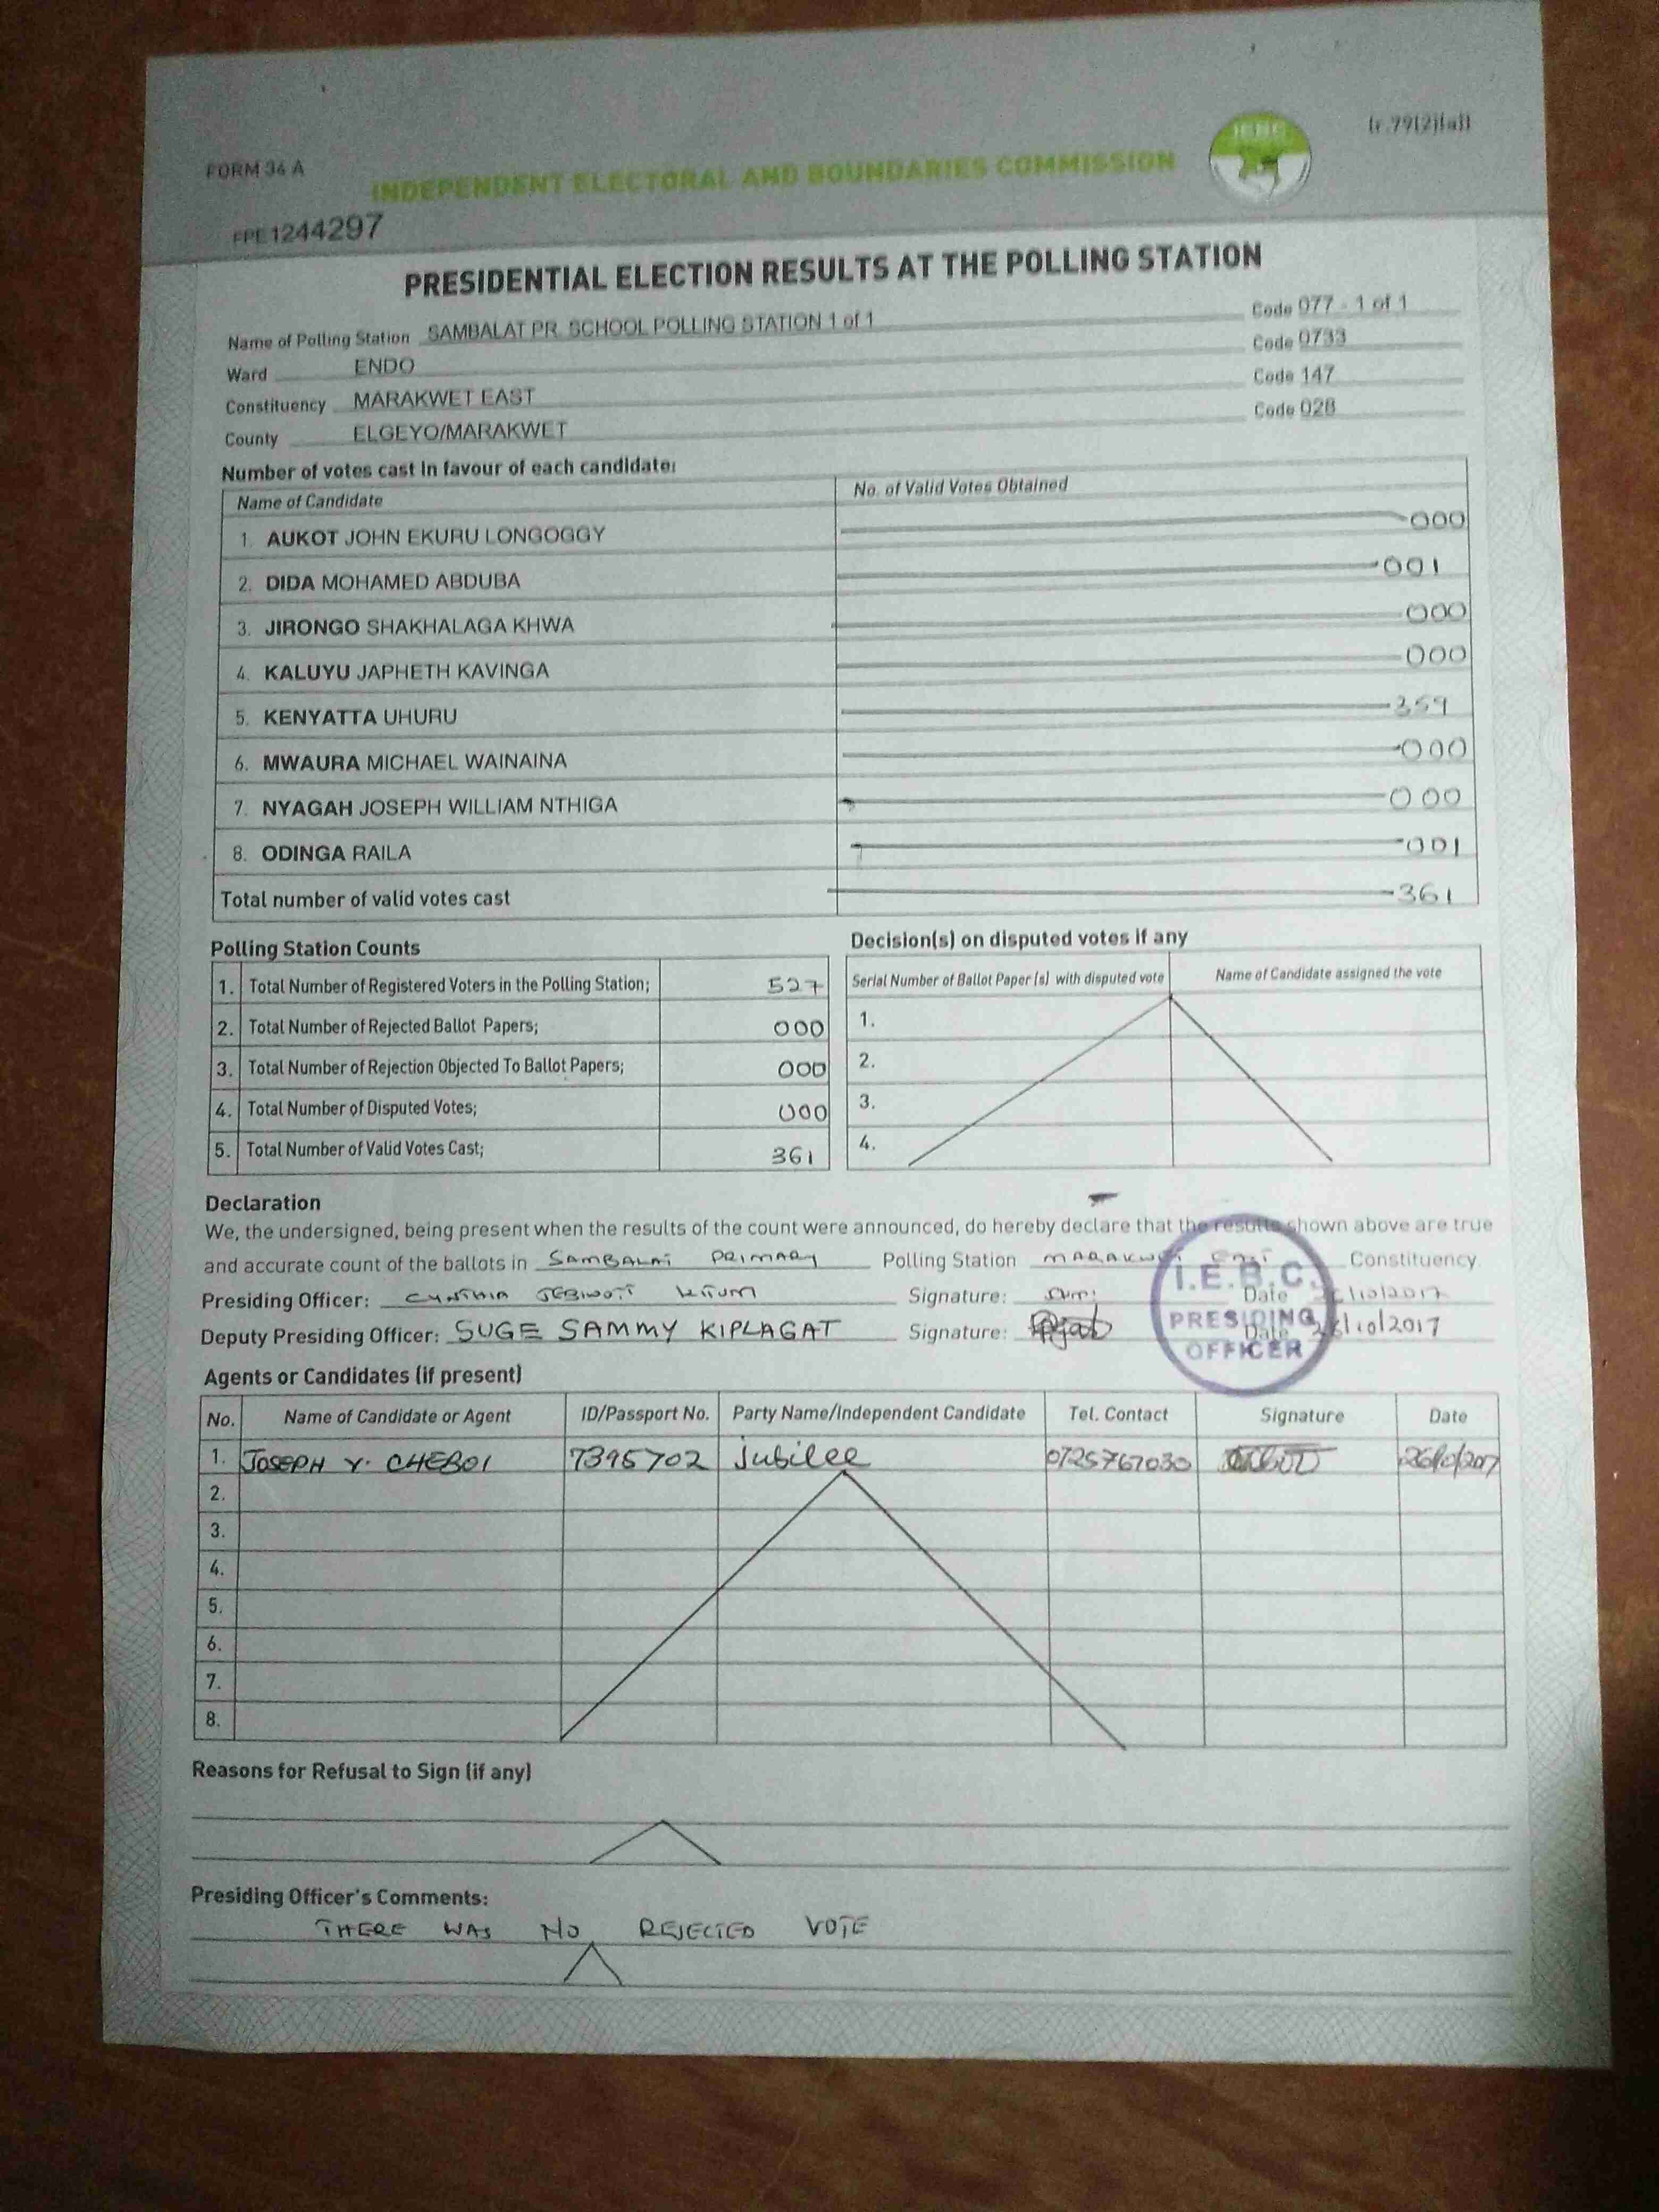 (r.79(2)(a))
FORM 34 A
INDEPENDENT ELECTORAL AND BOUNDARIES COMMISSION
IEBC
FPE1244297
PRESIDENTIAL ELECTION RESULTS AT THE POLLING STATION
Name of Polling Station SAMBALAT PR. SCHOOL POLLING STATION 1 of 1 Code 077 - 1 of 1
Ward ENDO Code 0733
Constituency MARAKWET EAST Code 147
County ELGEYO/MARAKWET Code 028
Number of votes cast in favour of each candidate:
Name of Candidate No. of Valid Votes Obtained
1. AUKOT JOHN EKURU LONGOGGY 000
2. DIDA MOHAMED ABDUBA 001
3. JIRONGO SHAKHALAGA KHWA 000
4. KALUYU JAPHETH KAVINGA 000
5. KENYATTA UHURU 359
6. MWAURA MICHAEL WAINAINA 000
7. NYAGAH JOSEPH WILLIAM NTHIGA 000
8. ODINGA RAILA 001
Total number of valid votes cast 361
Polling Station Counts
1. Total Number of Registered Voters in the Polling Station; 527
2. Total Number of Rejected Ballot Papers; 000
3. Total Number of Rejection Objected To Ballot Papers; 000
4. Total Number of Disputed Votes; 000
5. Total Number of Valid Votes Cast; 361
Decision(s) on disputed votes if any
Serial Number of Ballot Paper (s) with disputed vote Name of Candidate assigned the vote
1.
2.
3.
4.
Declaration
We, the undersigned, being present when the results of the count were announced, do hereby declare that the results shown above are true
and accurate count of the ballots in SAMBALAT PRIMARY Polling Station MARAKWET EAST Constituency.
Presiding Officer: CYNTHIA Signature: Date /10/2017
Deputy Presiding Officer: SUGE SAMMY KIPLAGAT Signature: Date 26/10/2017
I.E.B.C.
PRESIDING
OFFICER
Agents or Candidates (if present)
No. Name of Candidate or Agent ID/Passport No. Party Name/Independent Candidate Tel. Contact Signature Date
1. JOSEPH Y. CHEBOI 7395702 jubilee 0725767030 26/10/2017
2.
3.
4.
5.
6.
7.
8.
Reasons for Refusal to Sign (if any)
Presiding Officer's Comments:
THERE WAS NO REJECTED VOTE